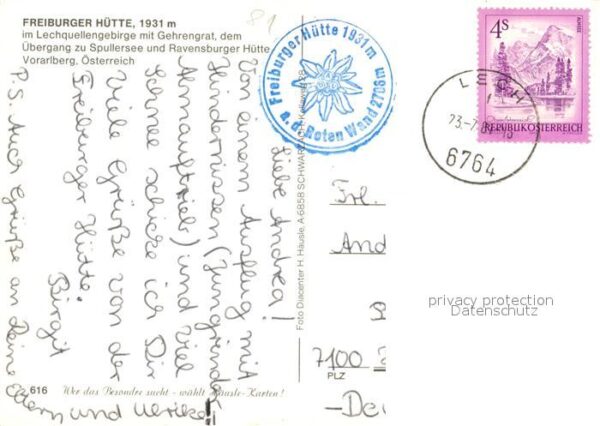 FREIBURGER HÜTTE, 1931 m
im Lechquellengebirge mit Gehrengrat, dem
Übergang zu Spullersee und Ravensburger Hütte
Vorarlberg, Österreich
81
Freiburger Hütte 1931m
a. d. Roten Wand 2706m
4S
REPUBLIK ÖSTERREICH
LECH
23.-7.
6764
Liebe Andrea!
Von einem Ausflug mit
Hindernissen (Jungrinder
Almauftrieb) und viel
Schnee schicke ich Dir
Viele Grüße von der
Freiburger Hütte.
Birgit
P.S. Auch Grüße an Deine Eltern und Ulrike!
Foto Diacenter H. Häusle, A-6858 SCHWARZACH
Frl.
And
7100
PLZ
-De
privacy protection
Datenschutz
616
Wer das Besondre sucht - wählt Häusle-Karten!